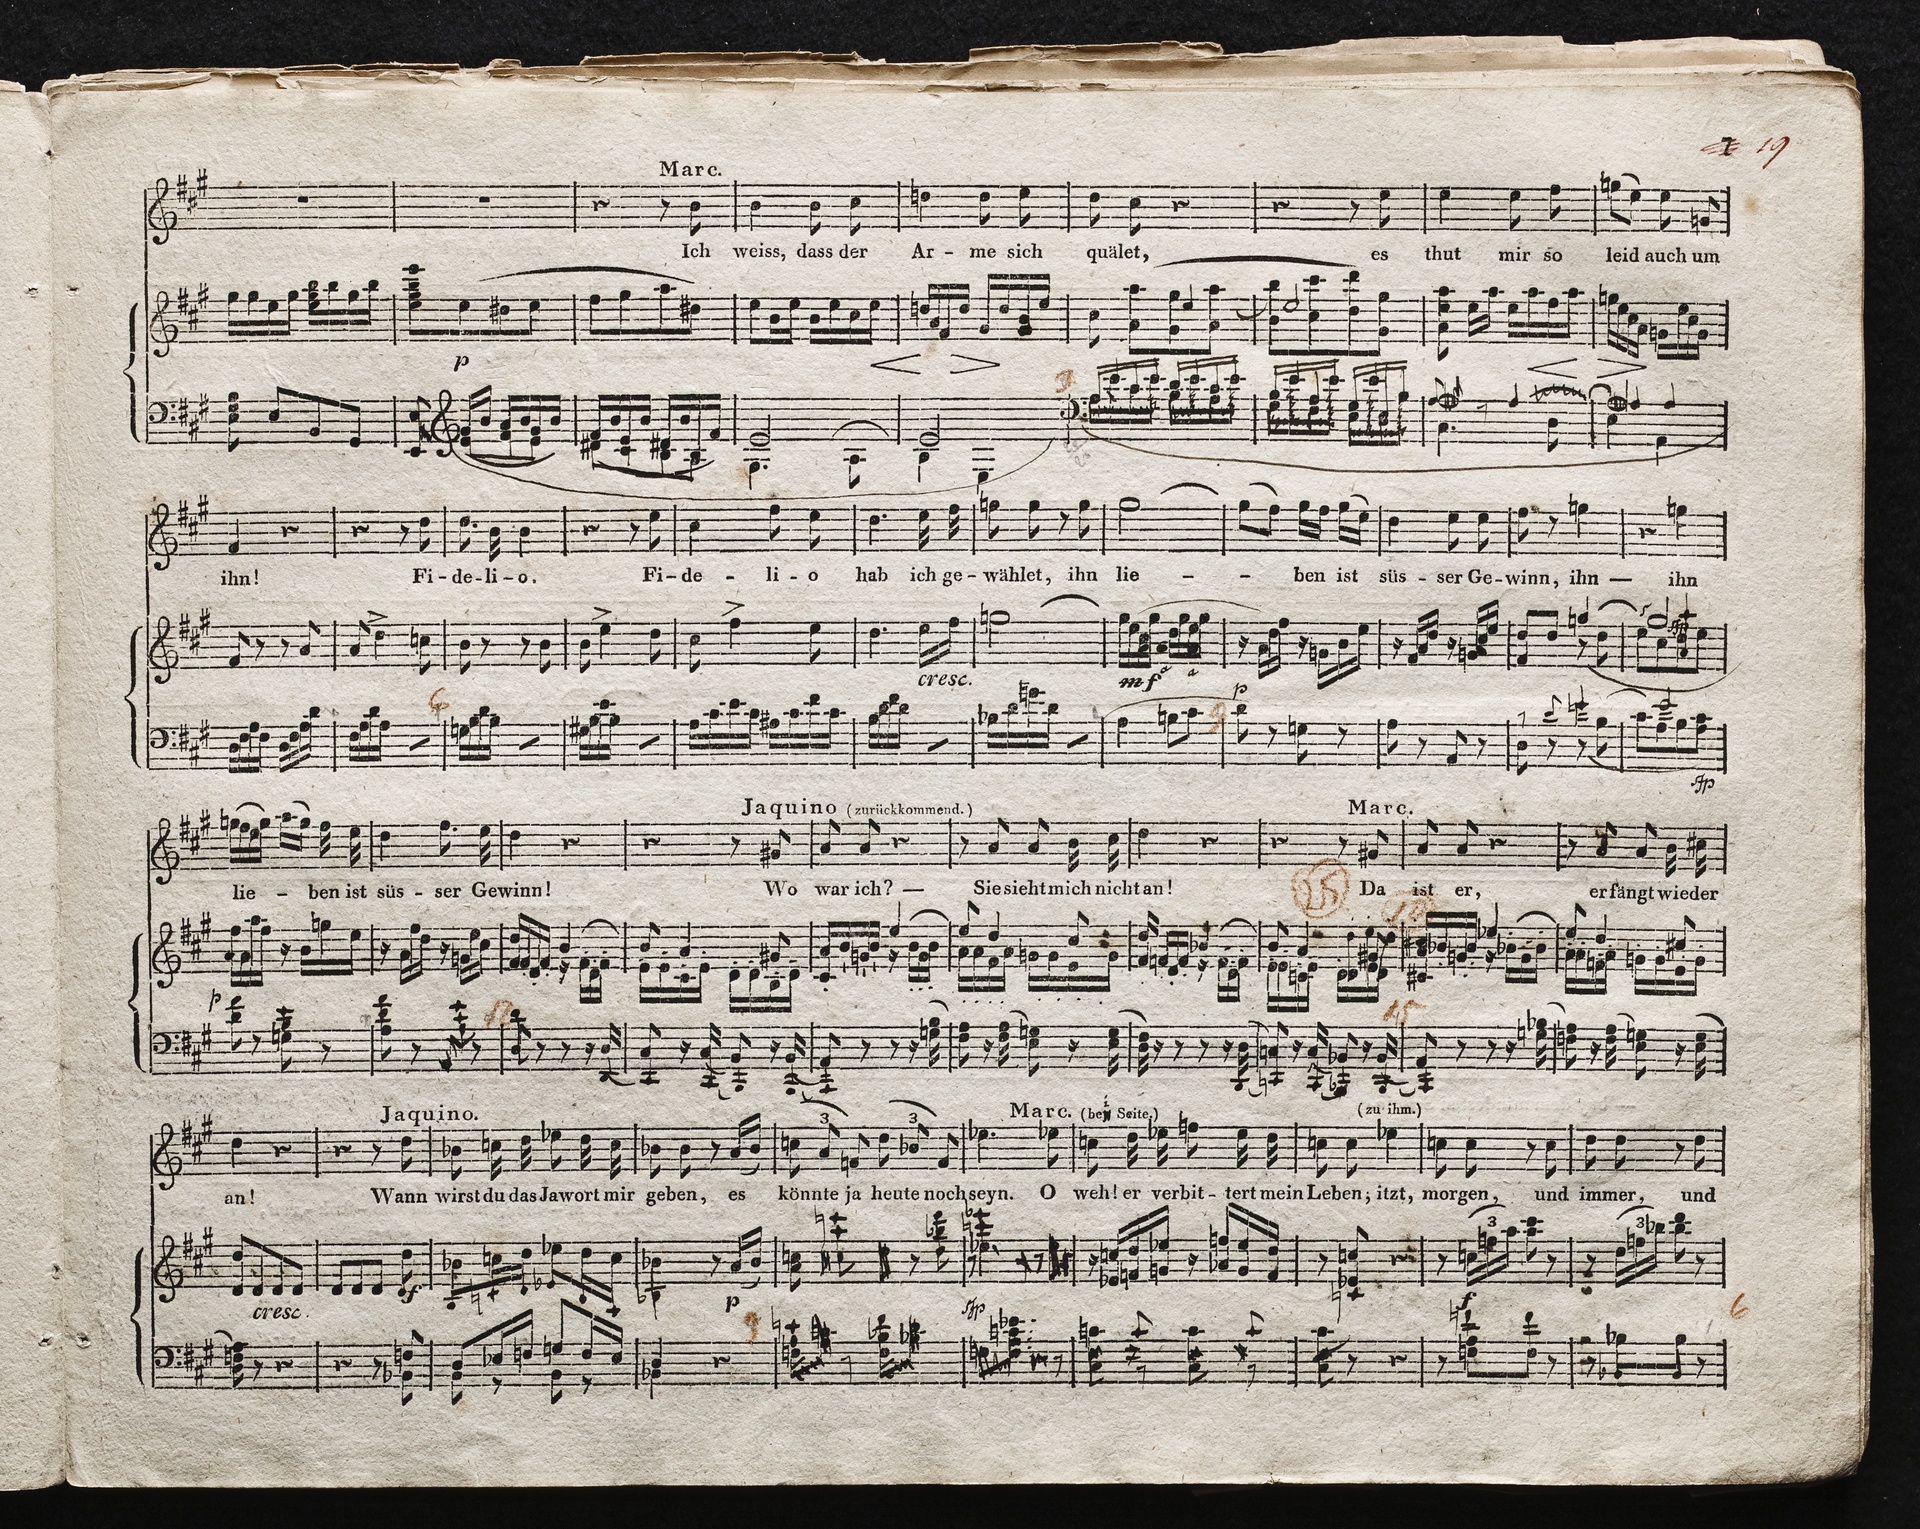 19
Marc.
Ich weiss, dass der Ar - me sich quälet, es thut mir so leid auch um
p
ihn! Fi-de-li-o. Fi-de - li-o hab ich ge-wählet, ihn lie - - ben ist süs - ser Ge-winn, ihn — ihn
cresc. mf
6 9 p
sfp
Jaquino (zurückkommend.) Marc.
lie - ben ist süs - ser Gewinn! Wo war ich? — Sie sieht mich nicht an! Da ist er, er fängt wieder
25
p
15
Jaquino. Marc. (bei Seite.) (zu ihm.)
an! Wann wirst du das Jawort mir geben, es könnte ja heute noch seyn. O weh! er verbit - tert mein Leben; itzt, morgen, und immer, und
3 3
3 3
cresc. f p sfp f
6